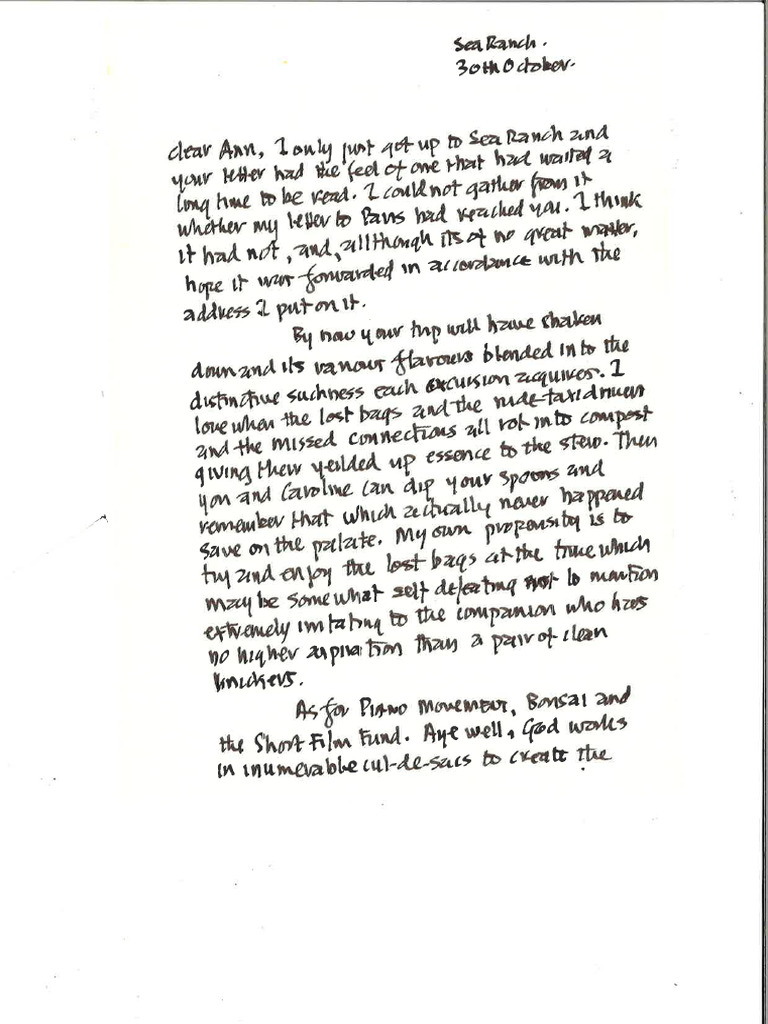 Sea Ranch.
30th October.
dear Ann, I only just got up to Sea Ranch and
your letter had the feel of one that had waited a
long time to be read. I could not gather from it
whether my letter to Paris had reached you. I think
it had not, and, allthough its of no great matter,
hope it was forwarded in accordance with the
address I put on it.
By now your trip will have shaken
down and its various flavours blended into the
distinctive suchness each excursion acquires. I
love when the lost bags and the rude taxi drivers
and the missed connections all rot into compost
giving their yeilded up essence to the stew. Then
you and Caroline can dip your spoons and
remember that which actually never happened
save on the palate. My own propensity is to
try and enjoy the lost bags at the time which
may be somewhat self defeating not to mention
extremely irritating to the companion who has
no higher aspiration than a pair of clean
knickers.
As for Piano Movement, Bonsai and
the Short Film Fund. Aye well, God works
in inumerable cul-de-sacs to create the